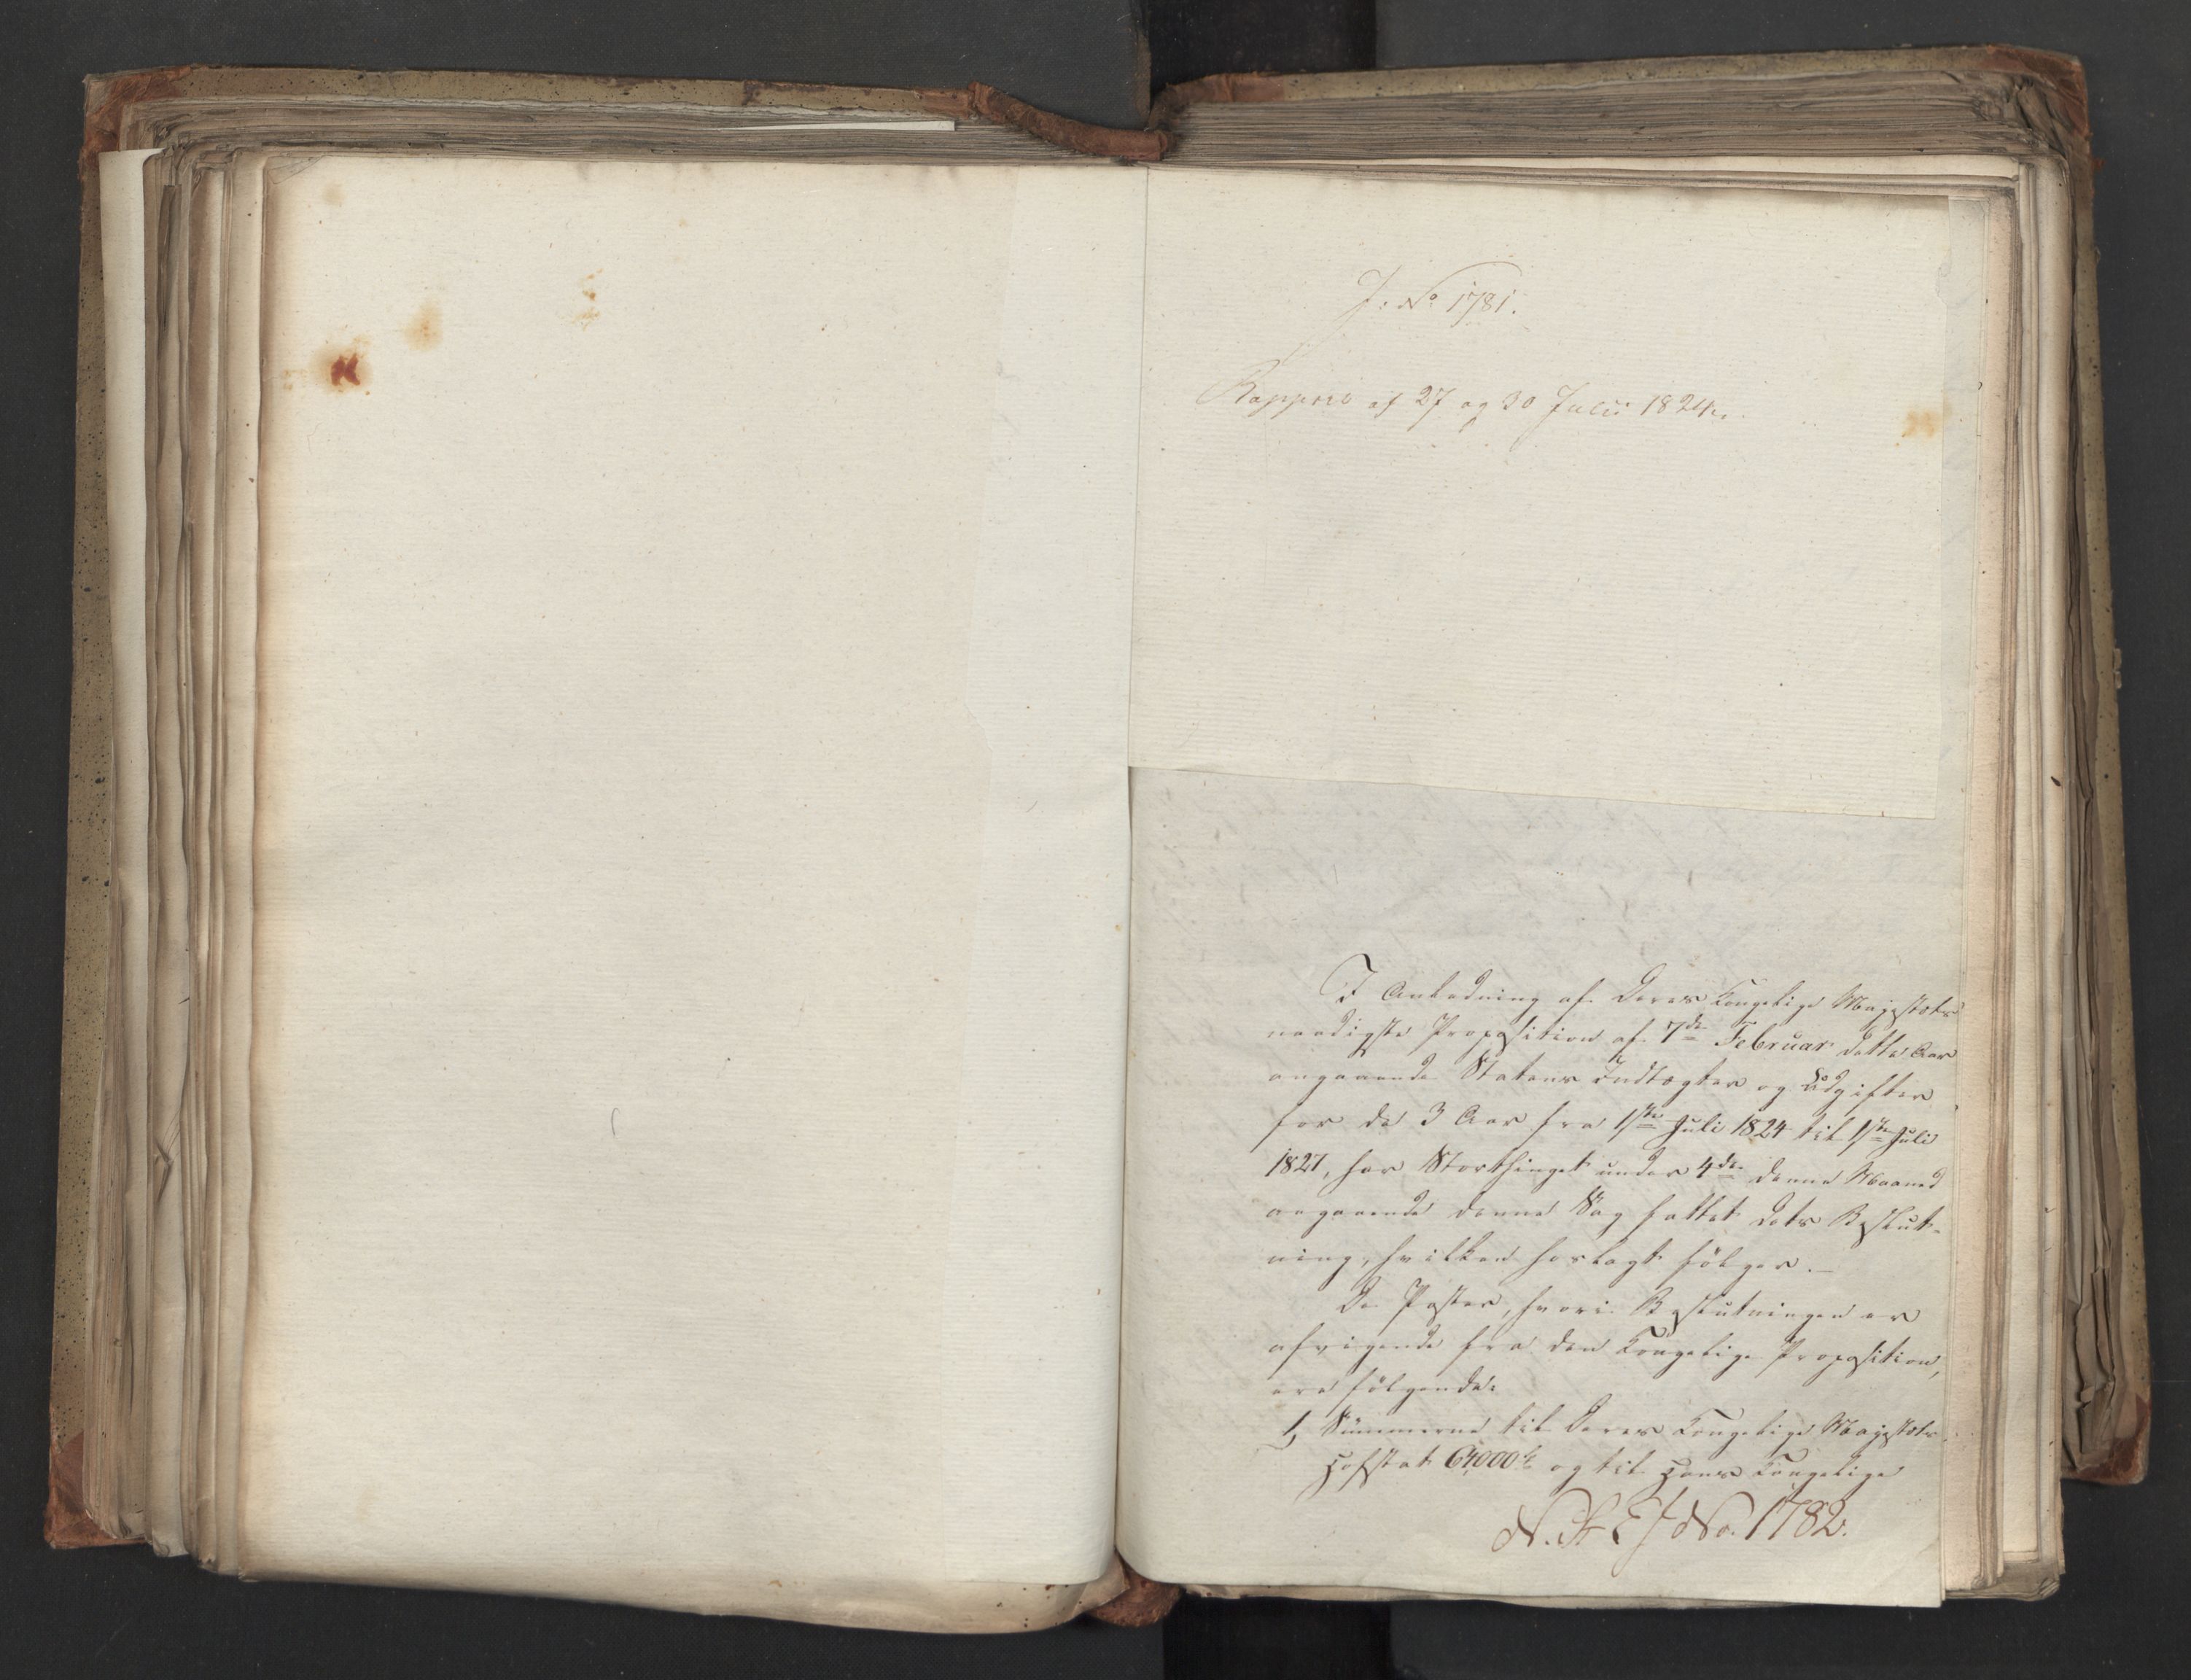 J: No 1781.
Rapport af 27 og 30 Julii 1824.
I Anledning af Deres Kongelige Majestæts
naadigste Proposition af 7de Februar dette Aar
angaaende Statens Indtægter og Udgifter
for de 3 Aar fra 1ste Juli 1824 til 1ste Juli
1827, har Storthinget under 4de denne Maaned
angaaende denne Sag fattet dets Beslut-
ning, hvilken hoslagt følger.
De Poster, hvori Beslutningen er
afvigende fra den Kongelige Proposition,
ere følgende:
1, Summerne til Deres Kongelige Majestæts
Hofstat 64000 og til Hans Kongelige
J No. 1782.